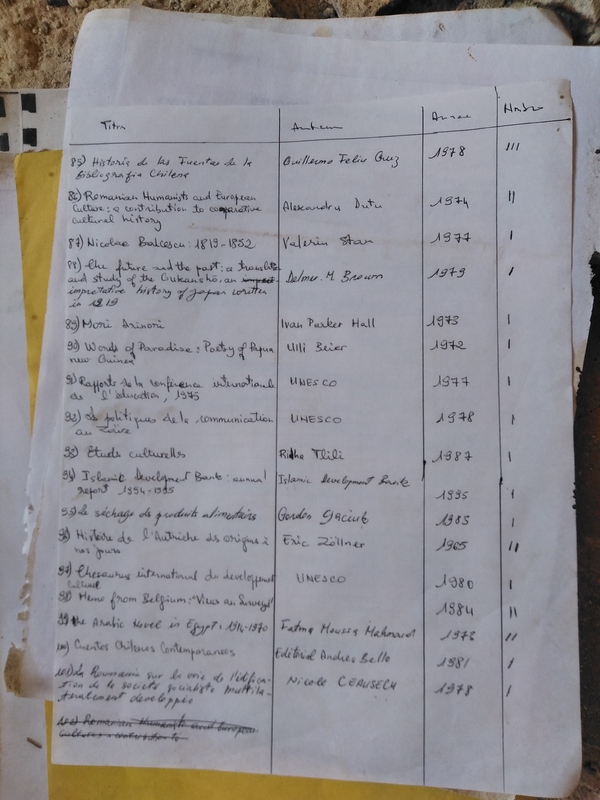 Titre Auteur Année Nmbr
85) Historia de las Fuentes de la Guillermo Feliu Cruz 1978 III
Bibliografia Chilena
86) Romanian Humanists and European Alexandru Dutu 1974 II
Culture: a contribution to comparative
cultural history
87) Nicolae Balcescu: 1819-1852 Valeriu Stan 1977 I
88) The future and the past: a translation Delmer. M Brown 1979 I
and study of the Gukanshō, an
impretative history of Japan written
in 1219
89) Mori Arinori Ivan Parker Hall 1973 I
90) Words of Paradise: Poetry of Papua Ulli Beier 1972 I
new Guinea
91) Rapports de la conférence internationale UNESCO 1977 I
de l'éducation, 1975
92) Le politiques de la communication UNESCO 1978 I
au Zaïre
93) Etude culturelles Ridha Tlili 1987 I
94) Islamic Development Bank: annual Islamic Development Bank
report 1994-1995 1995 I
95) Le séchage de produits alimentaires Gordon 1983 I
96) Histoire de l'Autriche des origines à Eric Zöllner 1965 II
nos jours
97) Thesaurus international du developpement UNESCO 1980 I
culturel
98) Memo from Belgium: "Views and Surveys" 1984 II
99) the Arabic Novel in Egypt: 1914-1970 Fatma Moussa Mahmoud 1973 II
100) Cuentos Chilenos Contemporaneos Editorial Andres Bello 1981 I
101) La Roumanie sur la voie de l'édifica- Nicolae CEAUSESCU 1978 I
tion de la societé socialiste multila-
téralement developpée
102) Romanian Humanists and European
Cultures: a contribution to